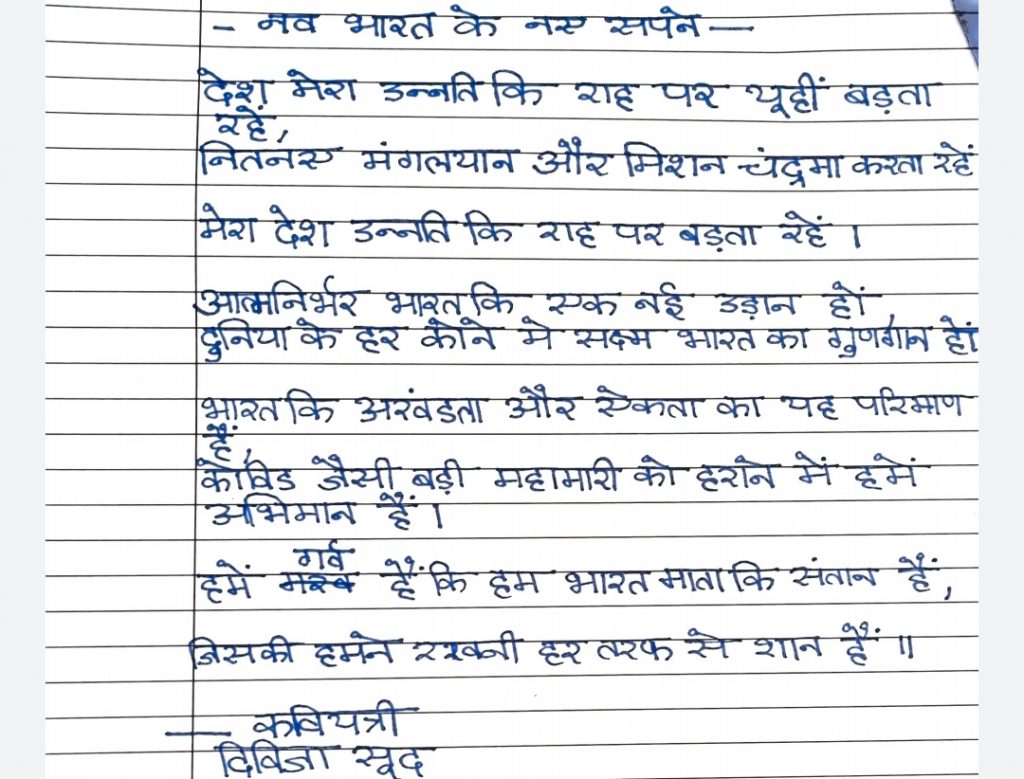 - नव भारत के नए सपने -
देश मेरा उन्नति कि राह पर यूहीं बड़ता
रहें,
नितनए मंगलयान और मिशन चंद्रमा करता रहें
मेरा देश उन्नति कि राह पर बड़ता रहें ।
आत्मनिर्भर भारत कि एक नई उड़ान हों,
दुनिया के हर कोने मे सक्ष्म भारत का गुणगान हों
भारत कि अखंडता और ऐकता का यह परिमाण
हैं,
कोविड जैसी बड़ी महामारी को हराने में हमें
अभिमान हैं ।
गर्व
हमें हैं कि हम भारत माता कि संतान हैं,
जिसकी हमने रखनी हर तरफ से शान हैं ॥
— कवियत्री
दिविजा सूद